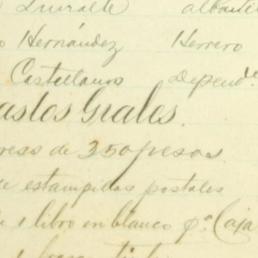 Iturralde albañil
Hernández Herrero
Castellanos Depend.e
astos Grales.
ress de 350 pesos
e estampillas postales
1 libro en blanco pa. Caja